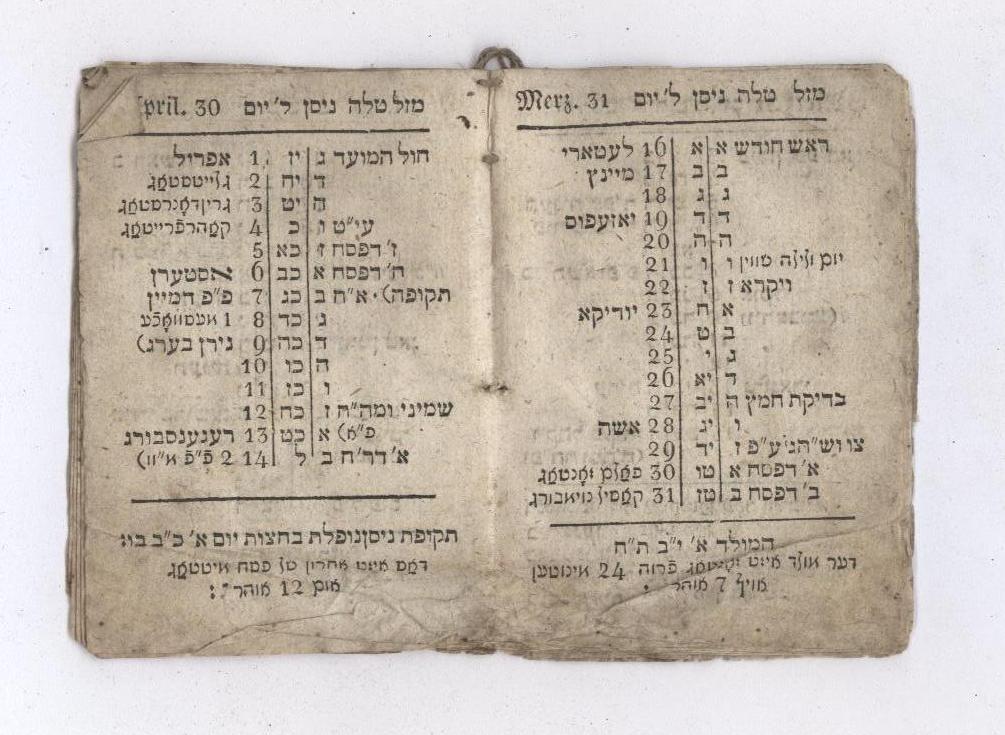 מזל טלה ניסן ל׳ יום Merz. 31
ראש חודש א א 16 לעטארי
ב ב 17 מיינץ
ג ג 18
ד ד 19 יאזעפוס
ה ה 20
ו ו 21
ויקרא ז ז 22
א ח 23 יודיקא
ב ט 24
ג י 25
ד יא 26
בדיקת חמץ ה יב 27
ו יג 28 אשה
צו וש״הג׳ ע״פ ז יד 29
א׳ דפסח א טו 30 פאלם זאנטאג
ב׳ דפסח ב טז 31 קאסיל נויאבורג
המולד א׳ י״ב ת״ח
דער מולד איזט זאנטאג פרוה 24 מינוטען
אויף 7 אוהר :
מזל טלה ניסן ל׳ יום pril. 30
חול המועד ג יז 1 אפריל
ד יח 2
ה יט 3 גרין דאנרסטאג
עי״ט ו כ 4 קאהרפרייטאג
ז׳ דפסח ז כא 5
ח׳ דפסח א כב 6 אסטערן
תקופה) א״ח ב כג 7 פ״פ דמיין
ג כד 8 1 מעסוואכע
ד כה 9 נירן בערג)
ה כו 10
ו כז 11
שמיני ומה״ח ז כח 12
פ״א) א כט 13 רעגענסבורג
א׳ דר״ח ב ל 14 2 פ״פ א״וו)
תקופת ניסן נופלת בחצות יום א׳ כ״ב בו:
דאס איזט אחרון של פסח מיטטאג
אום 12 אוהר :